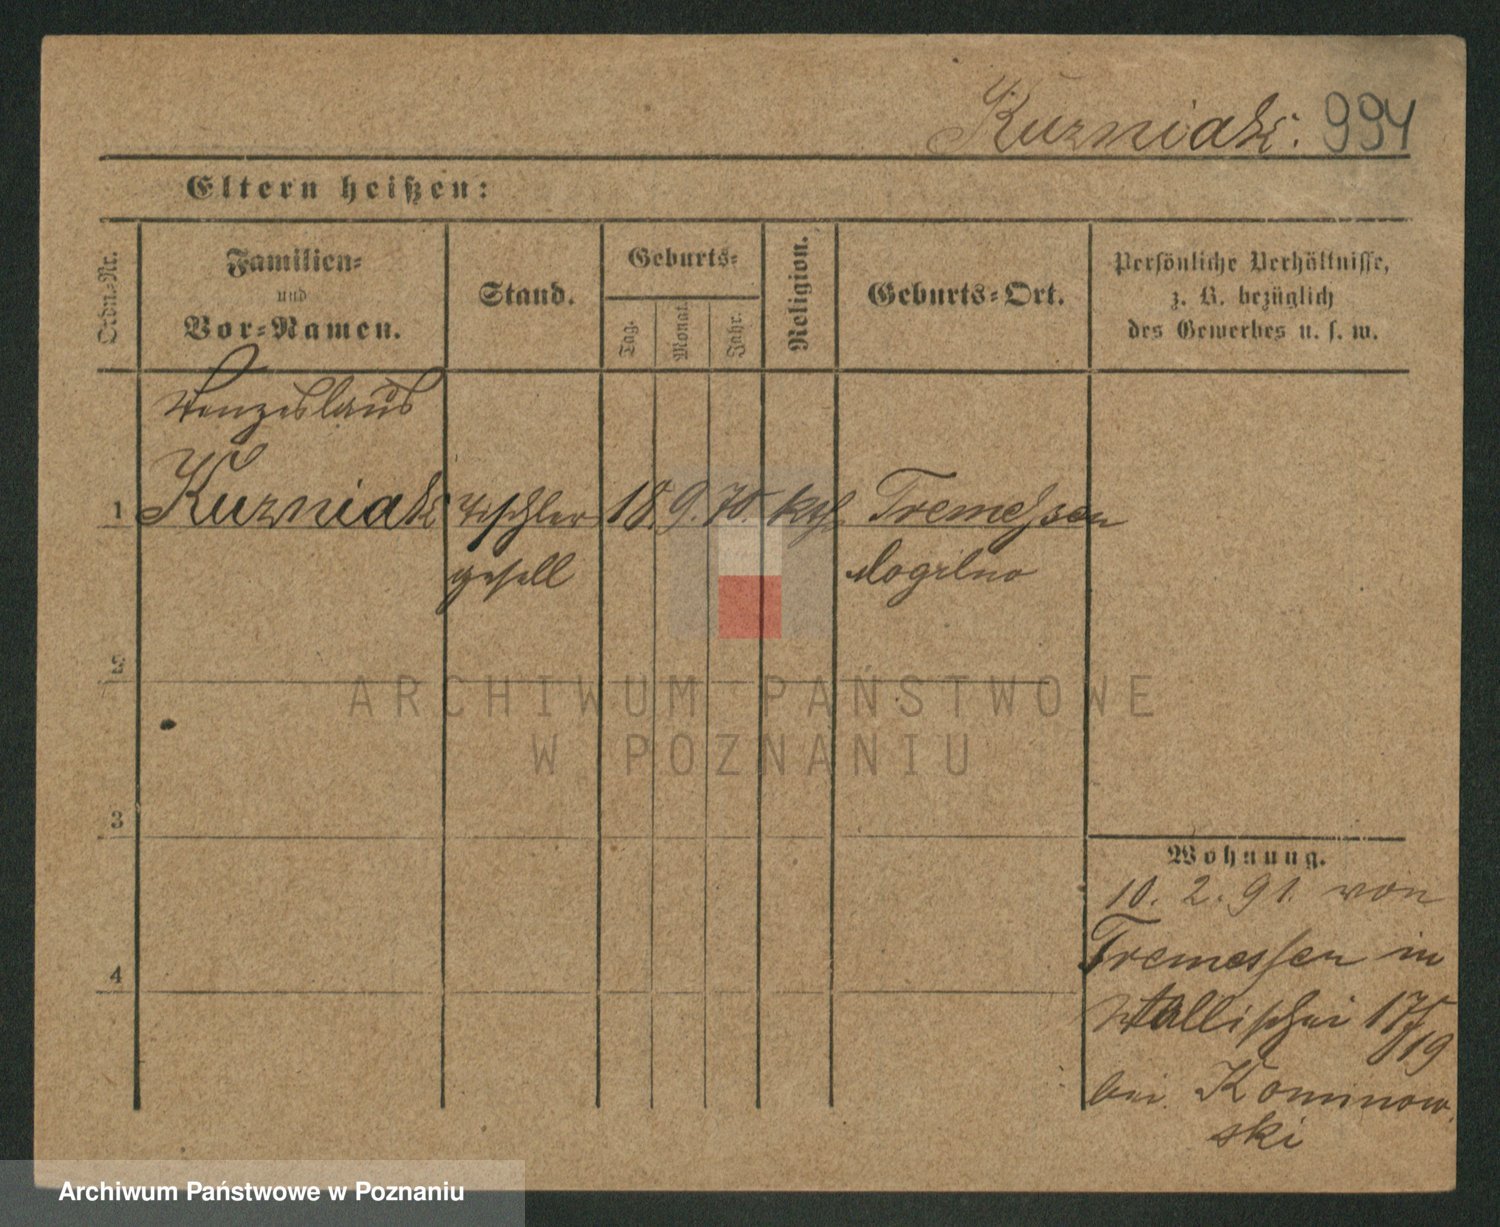 Kuzniak. 994
Eltern heißen:
Ordn.-Nr.
Familien-
und
Vor-Namen.
Stand.
Geburts-
Tag.
Monat.
Jahr.
Religion.
Geburts-Ort.
Persönliche Verhältnisse,
z. B. bezüglich
des Gewerbes u. s. w.
Wenzeslaus
1 Kuzniak Tischler 18. 9. 70. kth. Tremessen
gesell Mogilno
2
3
4
Wohnung.
10. 2. 91. von
Tremessen in
Wallischei 17/19
bei Kominow
ski
ARCHIWUM PAŃSTWOWE
W POZNANIU
Archiwum Państwowe w Poznaniu